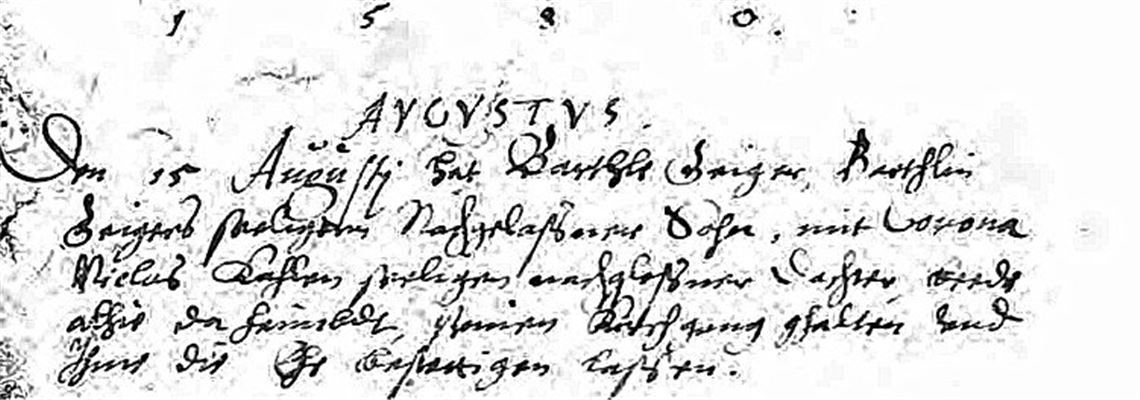 1 5 8 0.
AVGVSTVS.
Den 15 Augusti hat Barthle Geiger, Barthlin
Geigers seeligen Nachgelassner Sohn, mit Corona
Niclas Kohlen seeligen nachglassner Dochter beede
alhie da heimbdt, seinen Kirchgang ghalten vnd
Ihme die Ehe bestettigen lassen.